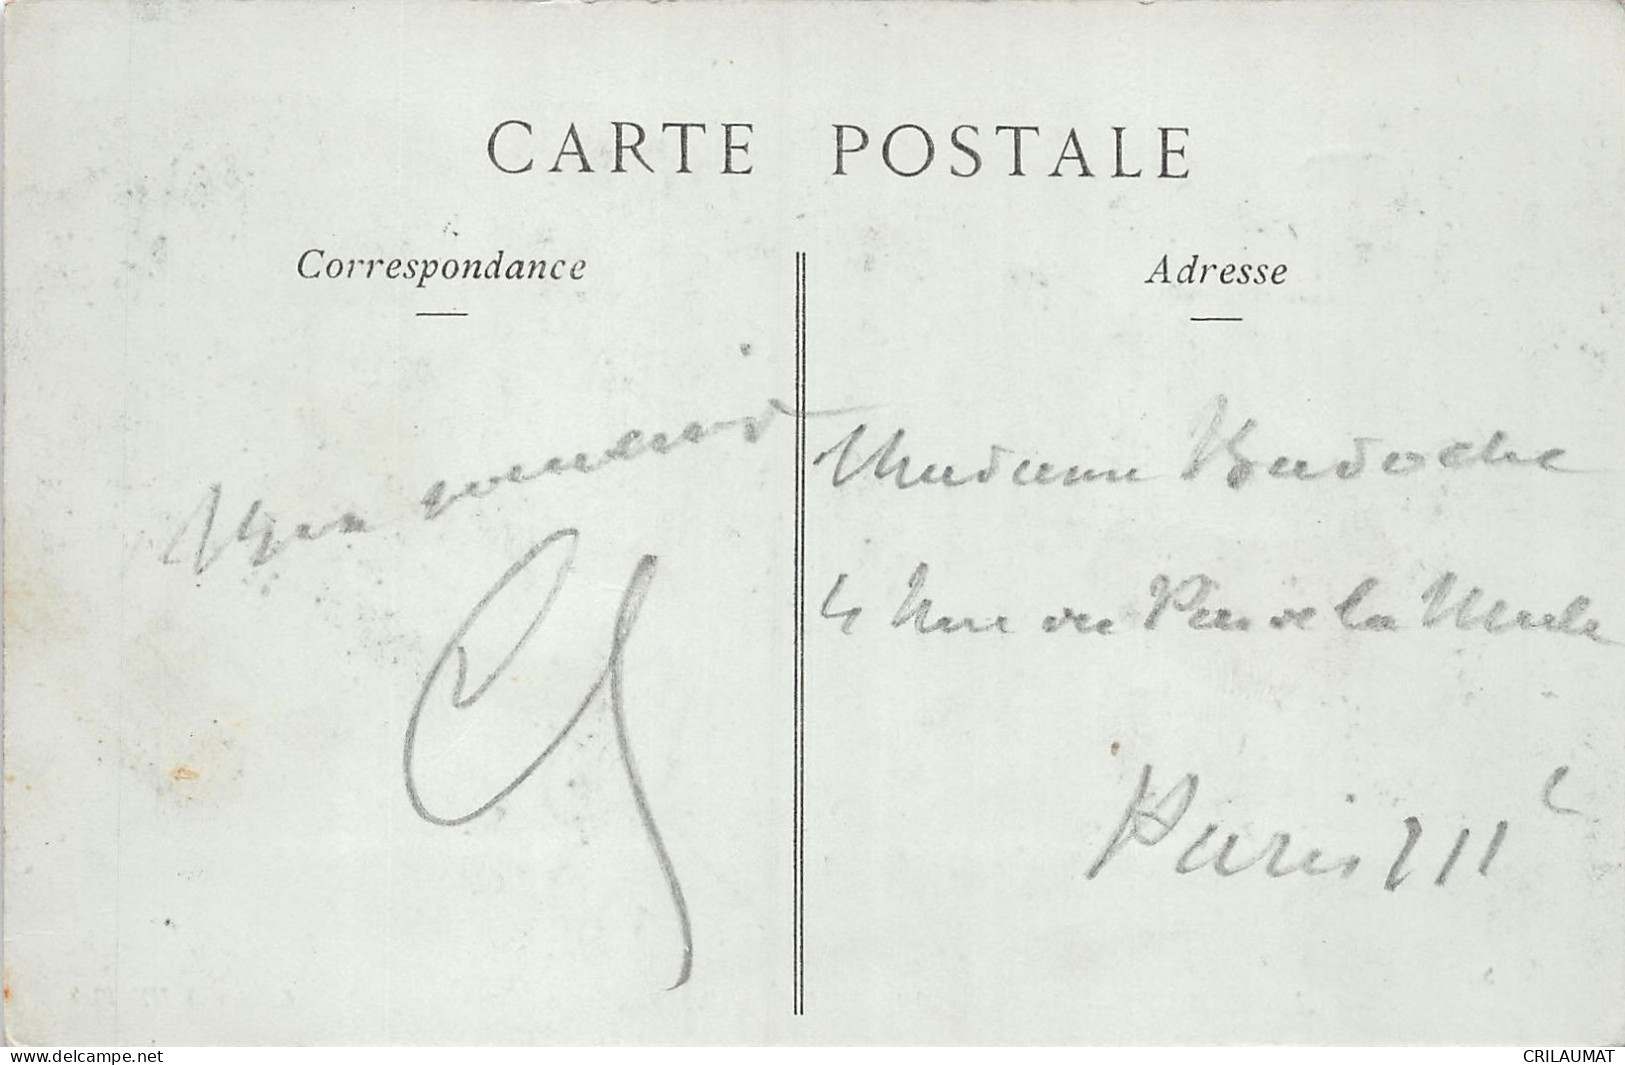 CARTE POSTALE
Correspondance
Adresse
souvenir
Madame Badoche
4 Rue du Pas de la Mule
Paris III e
www.delcampe.net
CRILAUMAT